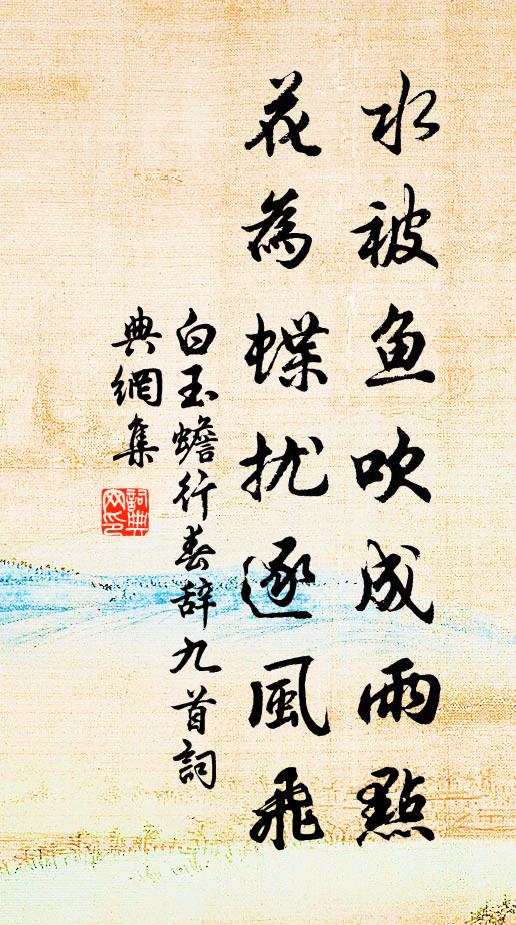 水被鱼吹成雨點
花為蝶扰逐風飛
白玉蟾行春辞九首詞
典網集
詞典网印